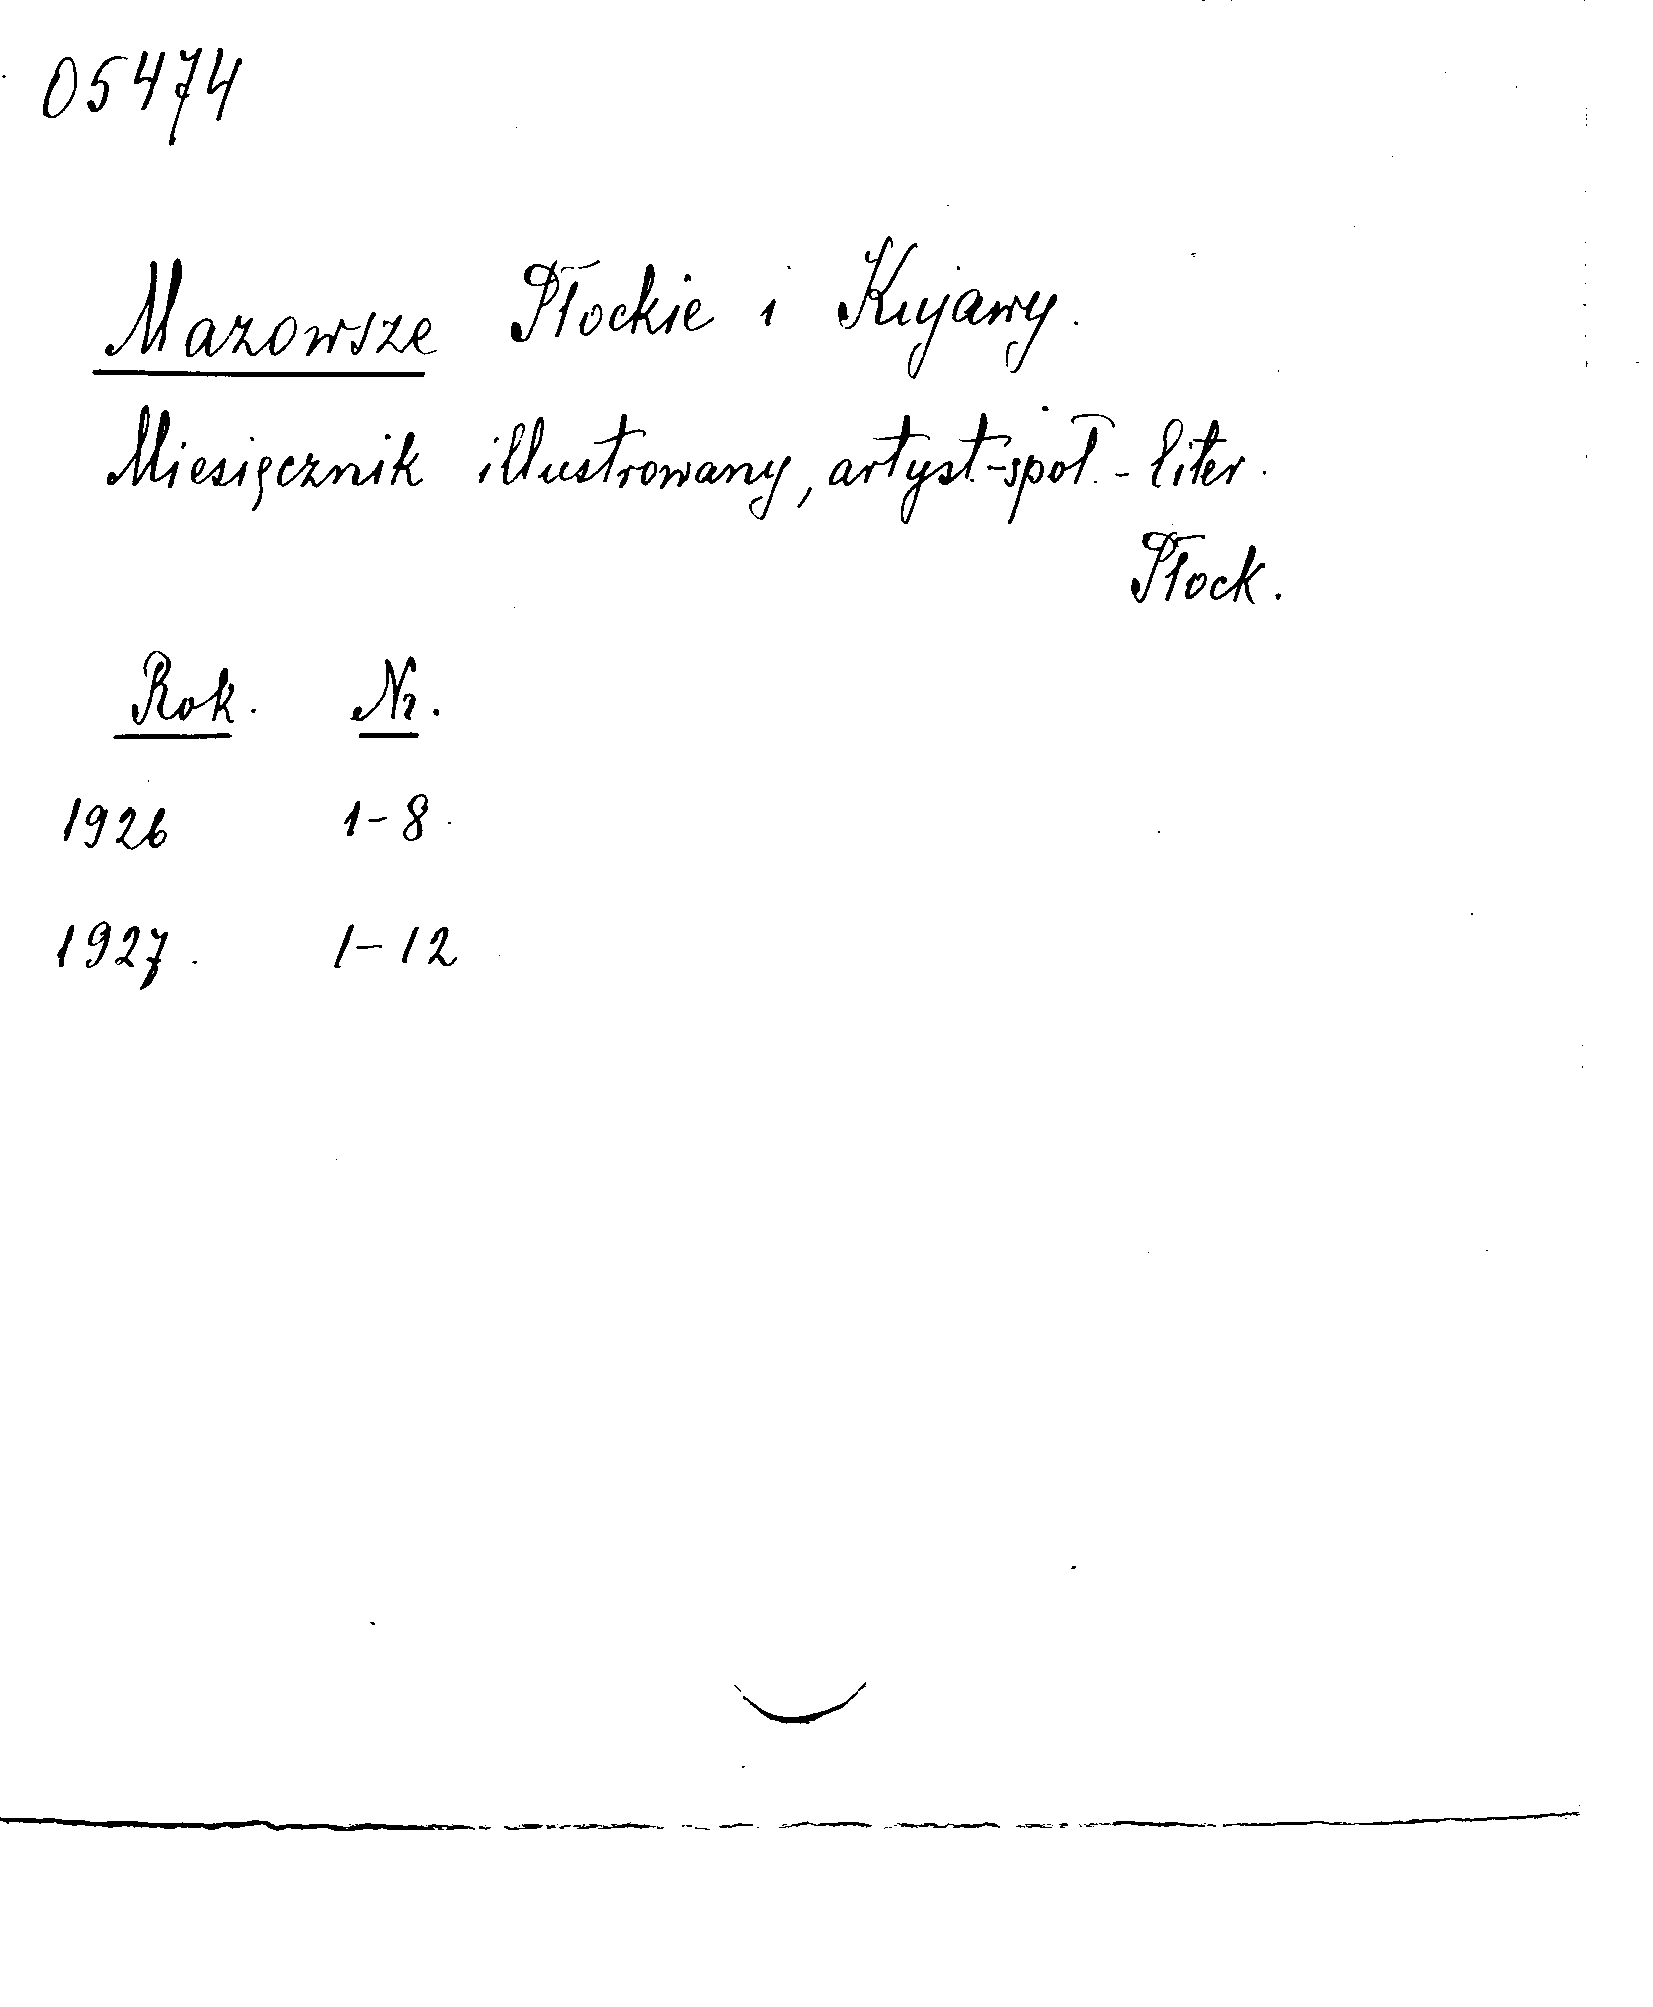 05474
Mazowsze Płockie i Kujawy.
Miesięcznik illustrowany, artyst.-społ.-liter.
Płock.
Rok. Nr.
1926 1-8.
1927. 1-12